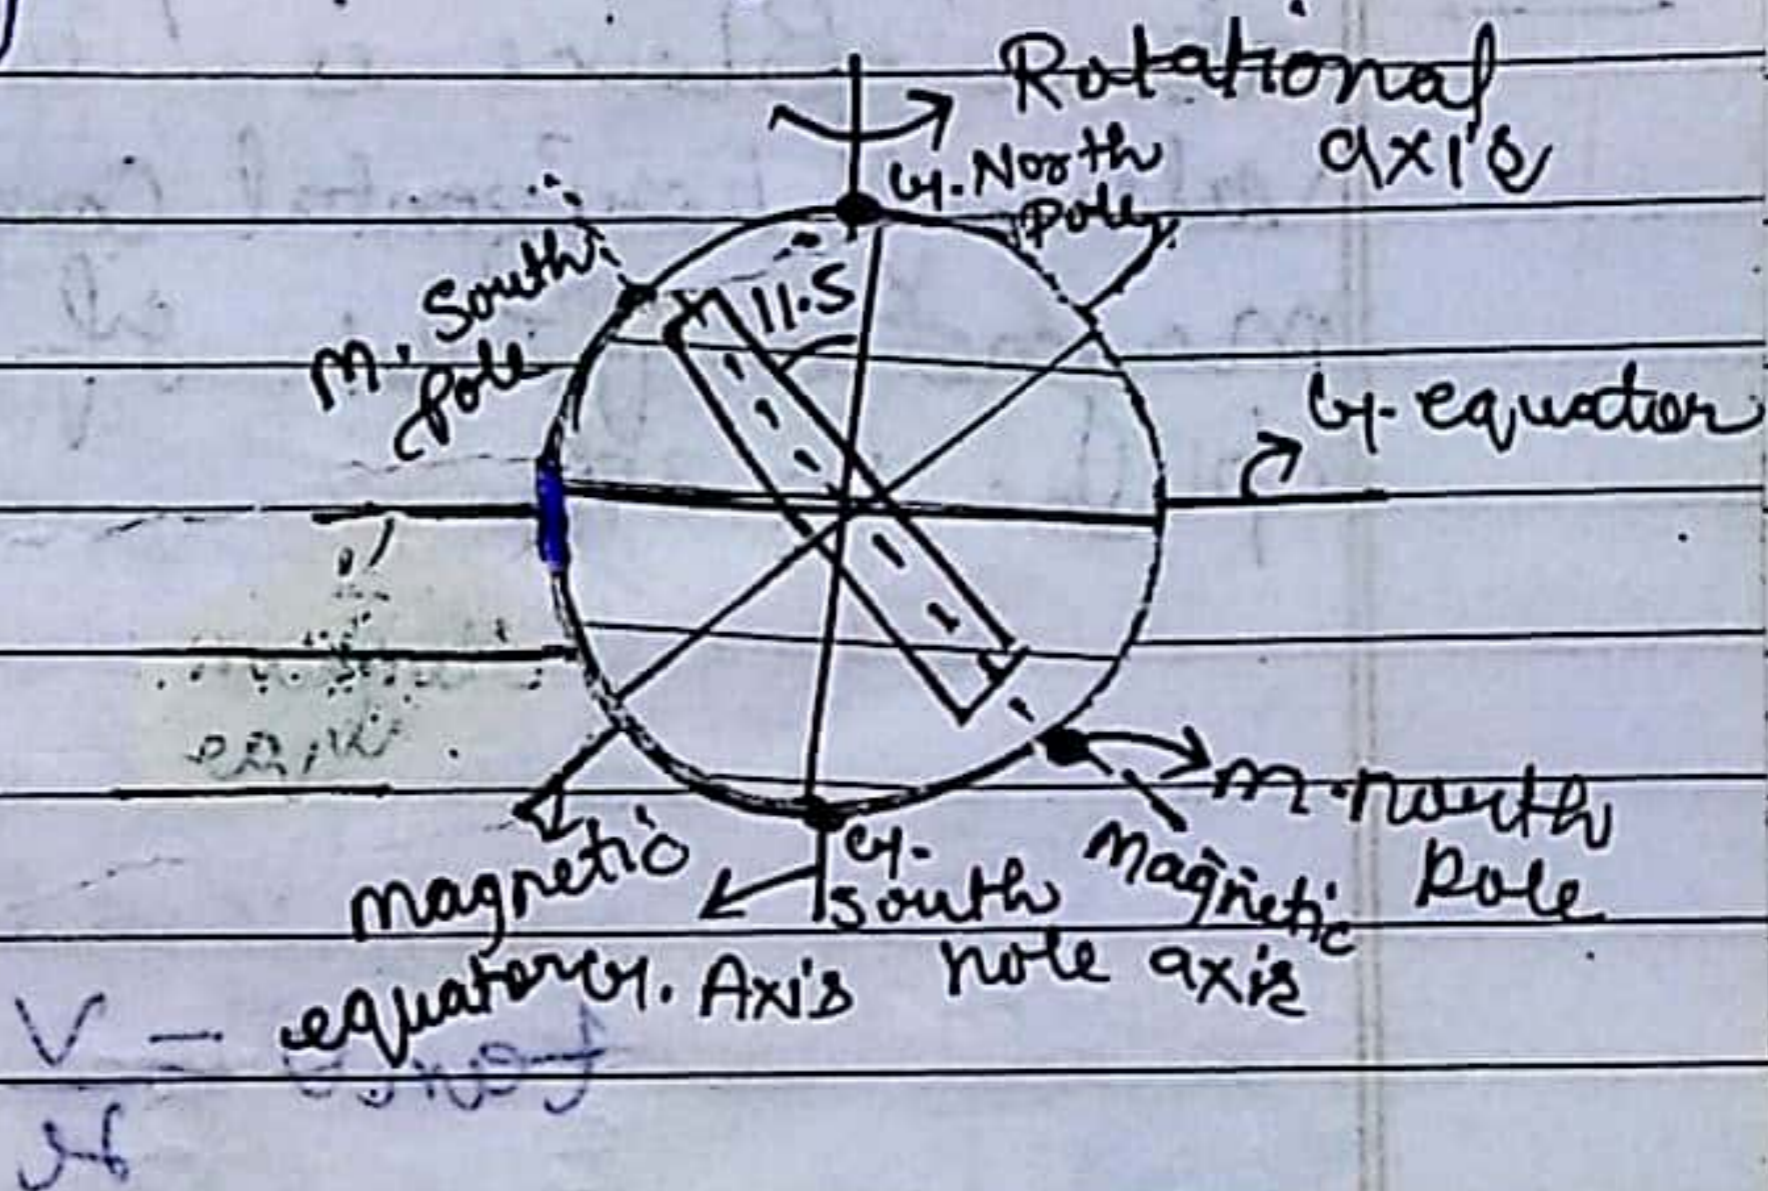 Rotational
axis
G. North
pole
M. South
pole
11.5
G. equator
m. north
pole
Magnetic
axis
G.
south
pole
G. Axis
magnetic
equator
V =